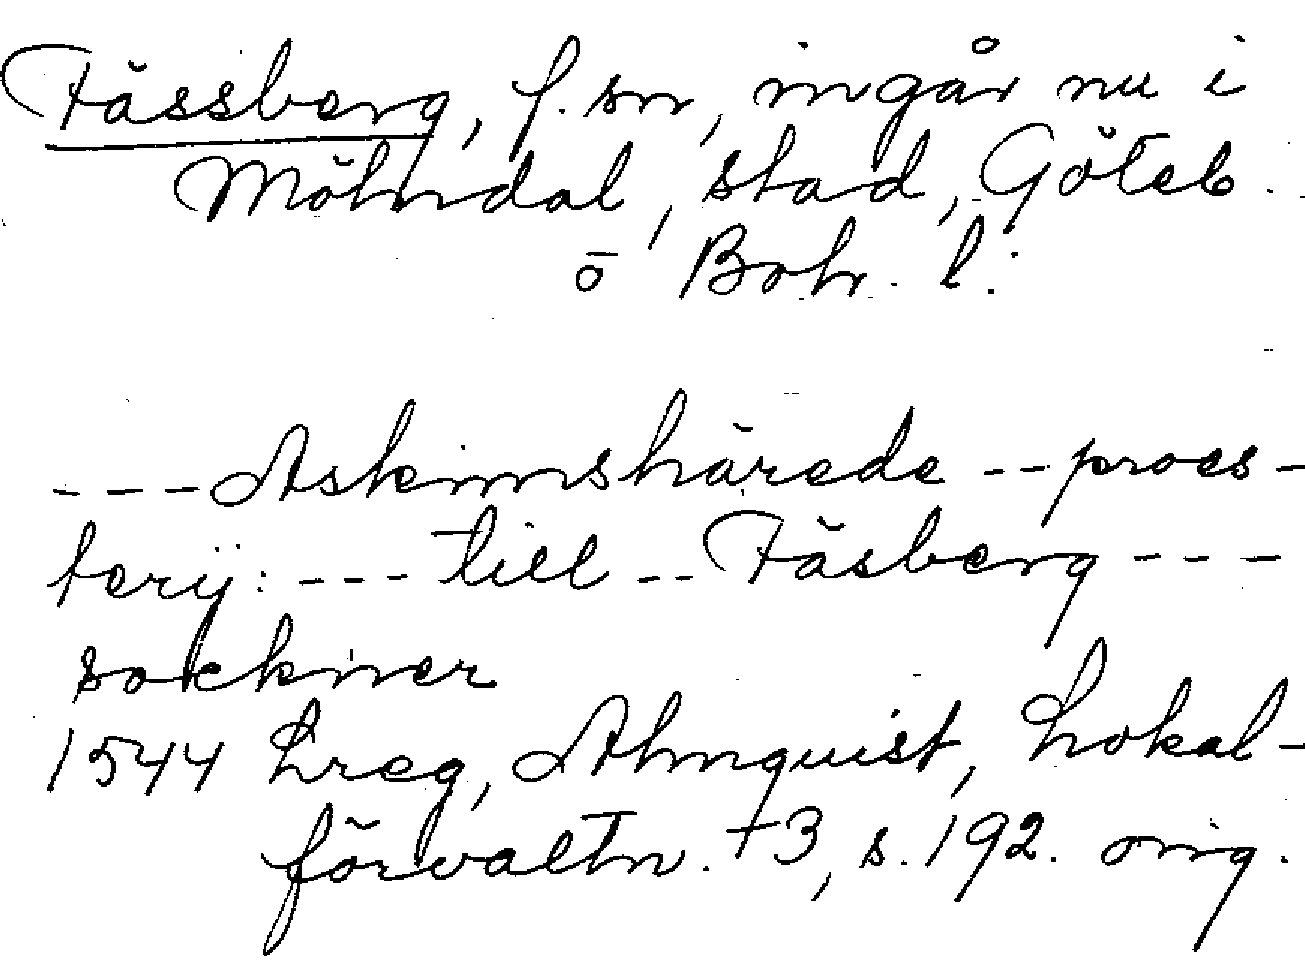 Fässberg, f. sn, ingår nu i
Mölndal, stad, Göteb.
o Boh. l.
---Askimshärede -- proes-
terij: --- till -- Fäsberg ---
sockner
1544 Lreg, Almquist, Lokal-
förvaltn. +3, s. 192. orig.